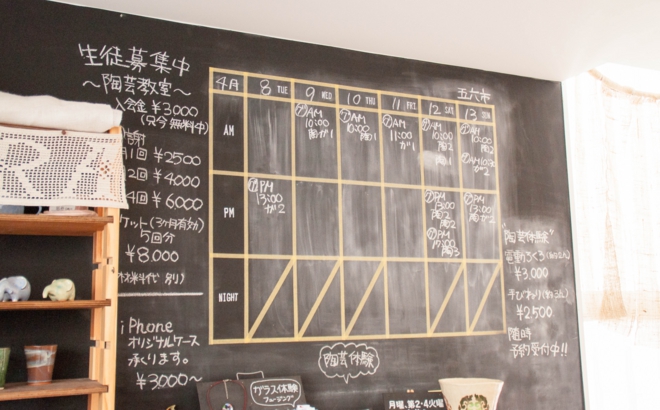 生徒募集中
～陶芸教室～
入会金 ¥3000
(只今無料中)
月謝
月1回 ¥2500
2回 ¥4000
4回 ¥6000
ケット(3ヶ月有効)
5回分
¥8,000
(材料代 別)
iPhone
オリジナルケース
承ります。
¥3000～
4月
8 TUE
9 WED
10 THU
11 FRI
12 SAT
五六市
13 SUN
AM
AM
10:00
陶ガ1
AM
10:00
陶1
AM
11:00
ガ1
AM
10:00
陶2
陶1
AM
10:00
陶2
AM10:30
ガ2
PM
PM
13:00
ガ2
PM
13:00
陶2
陶2
PM
19:00
陶3
PM
13:00
ガ2
NIGHT
"陶芸体験"
電動ろくろ
¥3,000
手びねり
¥2500
随時
予約受付中!!
陶芸体験
ガラス体験
フュージング
月曜、第2・4火曜